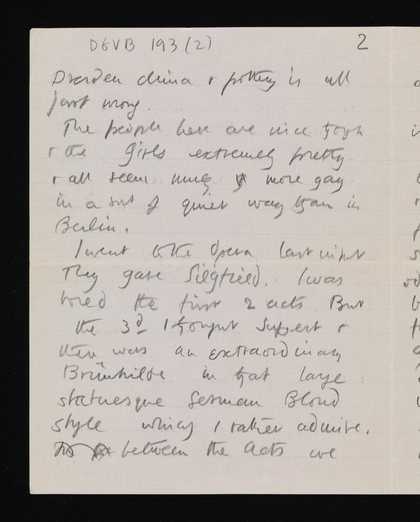 DGVB 193 (2)
2
Dresden china & pottery is all
just wrong.
The people here are nice though
& the girls extremely pretty
& all seem much more gay
in a sort of quiet way than in
Berlin.
I went to the Opera last night
They gave Siegfried. I was
bored the first 2 acts But
the 3rd I thought superb &
there was an extraordinary
Brünhilde in that large
statuesque German Blond
style which I rather admire.
between the Acts we